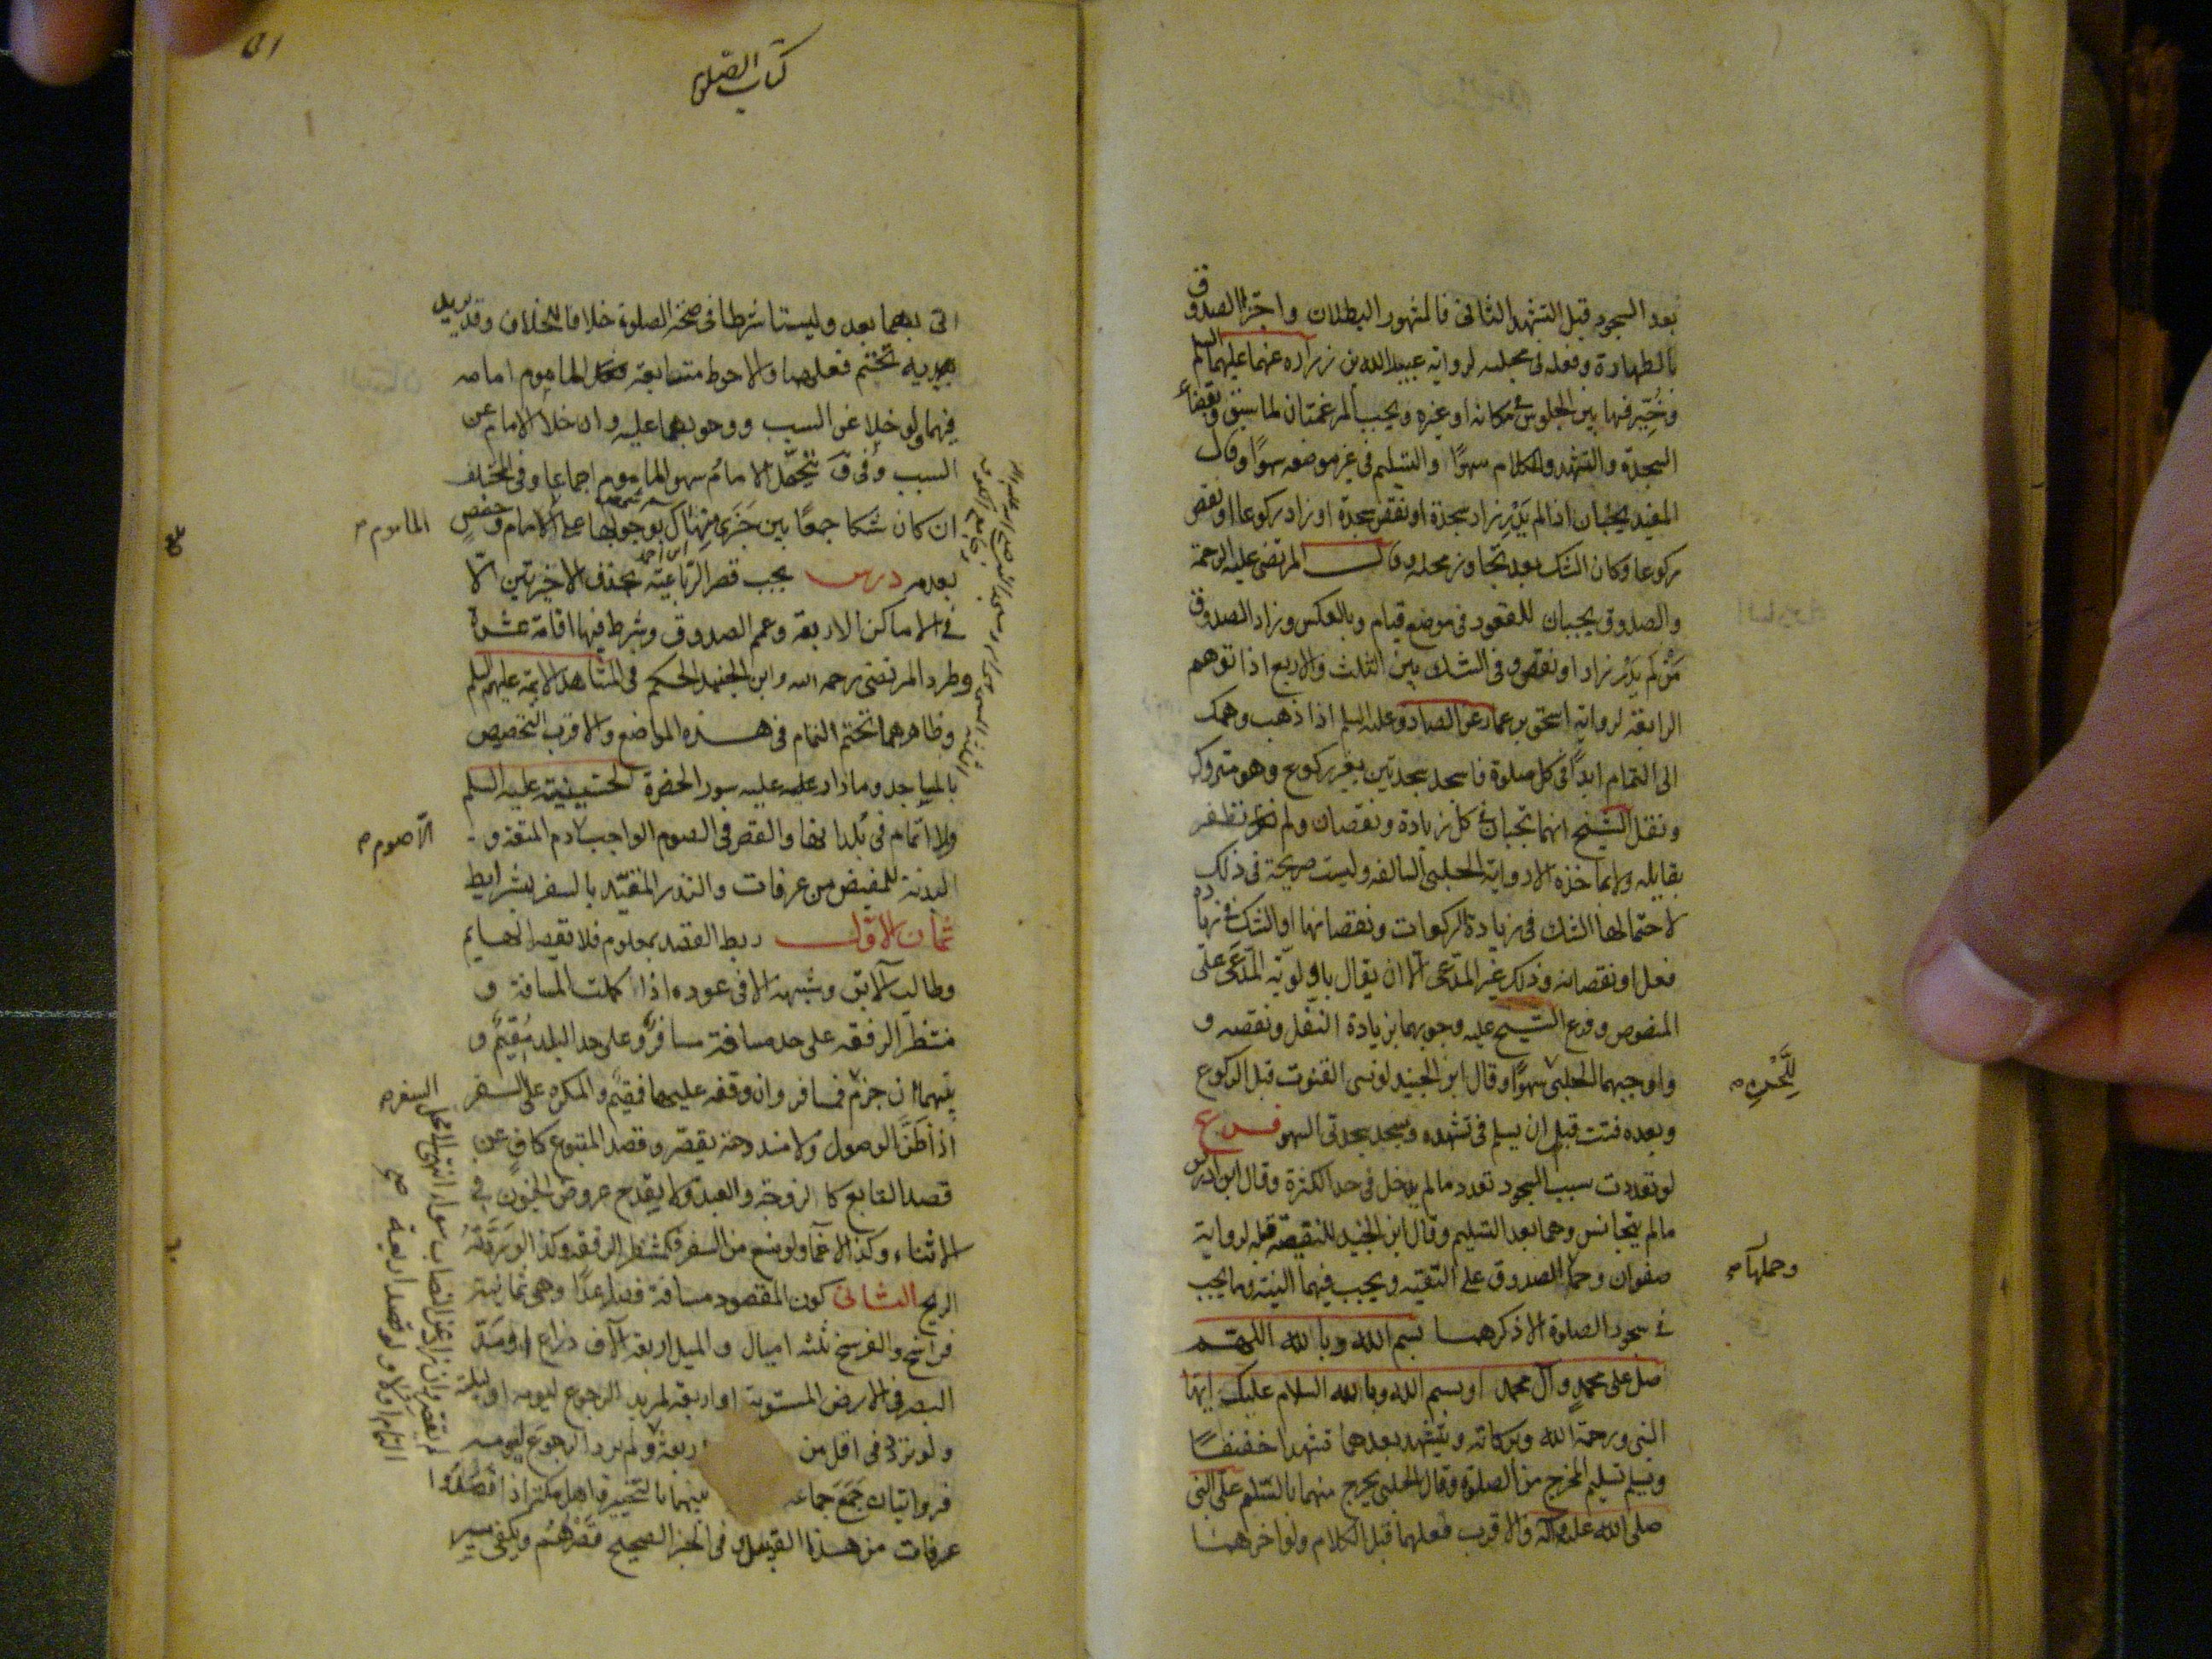 بعد السجود قبل التشهد الثانى فالمشهور البطلان واجتزا الصدوق
بالطهارة وفعله فى مجلسه لرواية عبيد الله بن زرارة عنهما عليهما السلم
وخُيّر فيها بين الجلوس فى مكانه او غيره ويجب المرغمتان لما سبق وتقضاء
السجدة والتشهد والكلام سهوًا والتسليم فى غير موضعه سهوًا وقال
المفيد يجبان اذا لم يَدْرِ زاد سجدة او نقص سجدة او زاد ركوعا او نقص
ركوعا وكان الشك بعد تجاوز محله وقال المرتضى عليه الرحمة
والصدوق يجبان للقعود فى موضع قيام وبالعكس وزاد الصدوق
مَنْ لم يَدْرِ زاد او نقص وفى الشك بين الثلث والاربع اذا توهم
الرابعة لرواية اسحق بن عمار عن الصادق عليه السلم اذا ذهب وهمك
الى التمام ابدًا فى كل صلوة فاسجد سجدتين بغير ركوع وهو متروك
ونقل الشيخ انهما تجبان فى كل زيادة ونقصان ولم نظفر
بقايله ولا ماخذه الا رواية الحلبى السالفه وليست صريحة فى ذلك
لاحتمالها الشك فى زيادة الركعات ونقصانها او الشك فى زيادة
فعل او نقصانه وذلك غير المدّعى الا ان يقال باولوية المدّعى على
المنصوص وفرع الشيخ عليه وجوبهما بزيادة النفل ونقصه و
واوجبهما الحلبى سهوًا وقال ابن الجنيد لو نسى القنوت قبل الركوع
وبعده قنت قبل ان يسلم فى تشهده وسجد سجدتى السهو فرع
لو تعددت سبب السجود تعدد ما لم يدخل فى حد الكثرة وقال ابن ادريس
ما لم يتجانس وهما بعد التسليم وقال ابن الجنيد للنقيصة قبله لرواية
صفوان وحمل الصدوق على التقيه ويجب فيهما النية وما يجب
فى سجود الصلوة الا ذكرهما بسم الله وبالله اللهم
صل على محمد وآل محمد او بسم الله وبالله السلام عليك ايها
النبى ورحمة الله وبركاته ويتشهد بعدهما تشهدا خفيفًا
ويسلم تسليم المخرج من الصلوة وقال الحلبى يخرج منهما بالتسليم على النبى
صلى الله عليه وآله والاقرب فعلهما قبل الكلام ولو اخرهما
للتحريه م
وحملها م
كتاب الصلوة
اتى بهما بعد وليستا شرطا فى صحة الصلوة خلافا للخلاف وقد
تختم فعلهما والاحوط متابعة الماموم امامه
فيهما ولو خلا عن السبب ووجوبهما عليه وان خلا الامام عن
السبب وفى ق يتحمّل الامام سهو الماموم اجماعا وفى المختلف
ان كان شكا جمعًا بين خبرى منهال بوجوبها على الامام وحفص
بعدمه درس يجب قصر الرباعيّة بحذف الاخيرتين الّا
فى الاماكن الاربعة وعمم الصدوق وشرط فيها اقامة عشرة
وطرد المرتضى رحمه الله وابن الجنيد الحكم فى مشاهد الايمة عليهم السلم
وظاهرهما تختم التمام فى هذه المواضع والاقرب التخصيص
بالمساجد وما دار عليه سور الحضرة الحسينية عليه السلم
ولا اتمام فى بلدانها والقصر فى الصوم الواجب لا دم المتعة و
البدنة للمفيض من عرفات والنذر المقيّد بالسفر بشرايط
ثمان الاول ربط القصد بمعلوم فلا يقصر الهايم
وطالب الآبق وشبهه الا فى عوده اذا كملت المسافة و
منتظر الرفقه على حد مسافة مسافر وعلى حد البلد مُقيم و
بينهما ان جزم فمسافر وان وقفه عليها فمقيم والمكره على السفر
اذا ظنّ الوصول ولا مندوحة يقصّر وقصد المتبوع كافٍ عن
قصد التابع كالزوجة والعبد ولا يقدح عروض الجنون فى
الاثناء وكذا الاغماء ولو منع من السفر فكمنتظر الرفقه وكذا لو ردّته
الريح الثانى كون المقصود مسافة فصاعدًا وهى ثمانية
فراسخ والفرسخ ثلثه اميال والميل اربعة آلاف ذراع او مدّ
البصر فى الارض المستوية او اربعة لمريد الرجوع ليومه او ليلته
ولو تردد فى اقل من اربعة ولم يرد الرجوع ليومه
فروايتان جَمَعَ جماعة بينهما بالتخيير واهل مكة اذا قصدوا
عرفات من هذا القبيل وفى الخبر الصحيح قصرهم ويكفى سير
الماموم م
الّا صوم م
السفر م
لم يقصر وان زاد عن النصاب سواء انتهى الى محل
التمام اولا ولو قصد اربعة صح